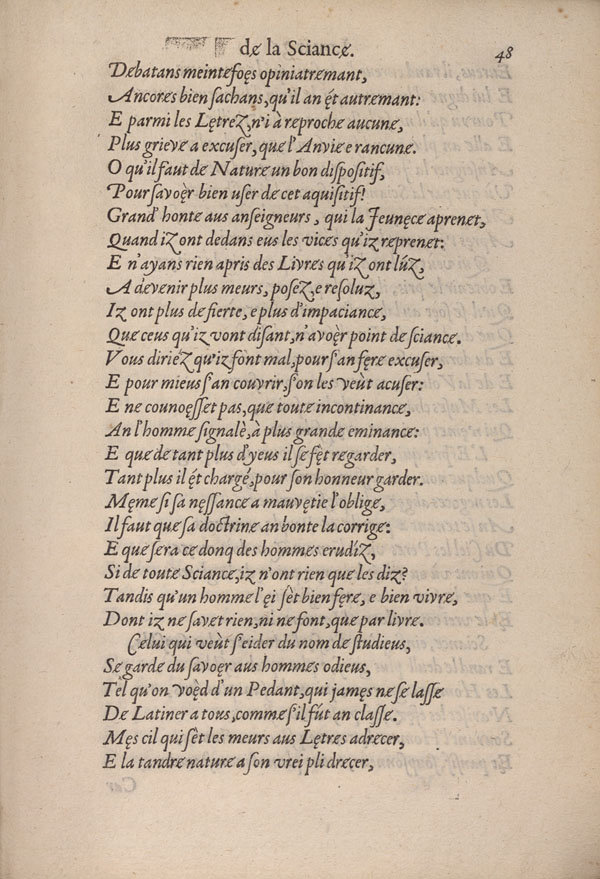 de la Sciance. 48
Debatans meintefoęs opiniatremant,
Ancores bien ſachans, qu'il an ę́t autremant:
E parmi les Lętrez, n'i à reproche aucune,
Plus grieve a excuſer, que l'Anvie e rancune.
O qu'il faut de Nature un bon diſpoſitif,
Pour ſavoęr bien uſer de cet aquiſitif!
Grand' honte aus anſeigneurs, qui la Jeunęce aprenet,
Quand iz ont dedans eus les vices qu'iz reprenet:
E n'ayans rien apris des Livres qu'iz ont lúz,
A devenir plus meurs, poſez, e reſoluz,
Iz ont plus de fierte, e plus d'impaciance,
Que ceus qu'iz vont diſant, n'avoęr point de ſciance.
Vous diriéz qu'iz font mal, pour ſ'an fęre excuſer,
E pour mieus ſ'an couvrir, ſ'on les veùt acuſer:
E ne counoęſſet pas, que toute incontinance,
An l'homme ſignalè, à plus grande eminance:
E que de tant plus d'yeus il ſe fęt regarder,
Tant plus il ę́t chargé, pour ſon honneur garder.
Męme ſi ſa nęſſance a mauvętie l'oblige,
Il faut que ſa doctrine an bonte la corrige:
E que ſera ce donq des hommes erudíz,
Si de toute Sciance, iz n'ont rien que les diz?
Tandis qu'un homme lęi ſèt bien fęre, e bien vivre,
Dont iz ne ſavet rien, ni ne font, que par livre.
Celui qui veùt ſ'eider du nom de ſtudieus,
Se garde du ſavoęr aus hommes odieus,
Tèl qu'on voęd d'un Pedant, qui jamęs ne ſe laſſe
De Latiner a tous, comme ſ'il fút an claſſe.
Męs cil qui ſèt les meurs aus Lętres adrecer,
E la tandre nature a ſon vrei pli drecer,